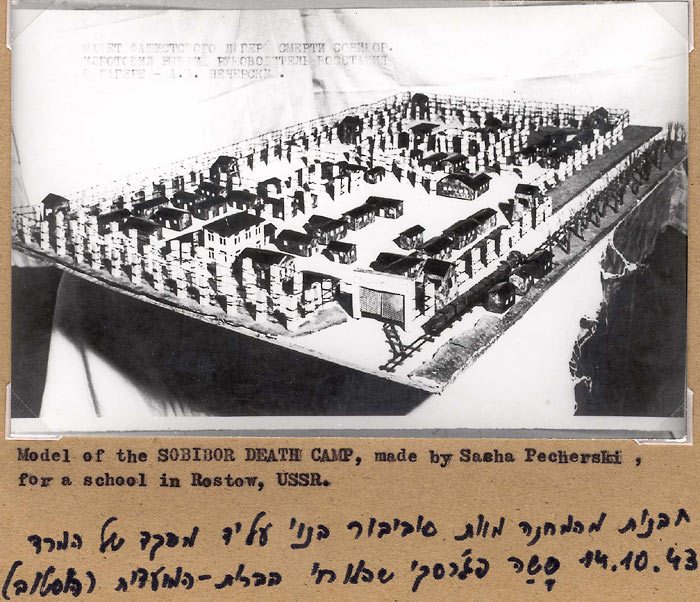 МАКЕТ ФАШИСТСКОГО ЛАГЕРЯ СМЕРТИ СОБИБОР.
ИЗГОТОВИЛ БЫВШИЙ РУКОВОДИТЕЛЬ ВОССТАНИЯ
В ЛАГЕРЕ - А.А. ПЕЧЕРСКИ.
Model of the SOBIBOR DEATH CAMP, made by Sasha Pecherski ,
for a school in Rostow, USSR.
תבנית מהמחנה מוות סוביבור בנוי על יד מפקד של המרד
14.10.43 סָשָה פצ'רסקי חי בברית-המועצות (רוסטוב)